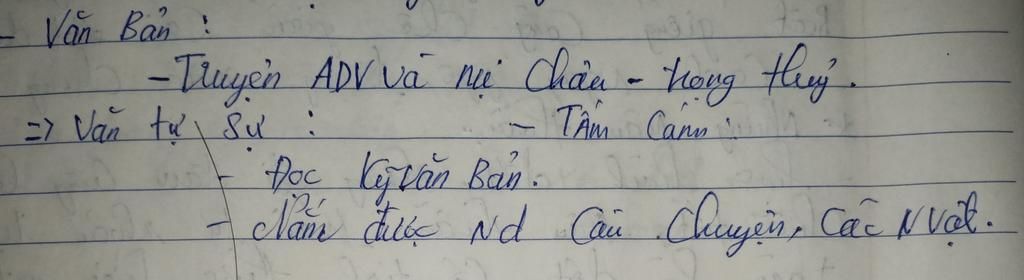 - Văn Bản :
- Truyện ADV và Mị Châu - Trọng thuỷ.
=> Văn tự sự : - Tấm Cám:
- Đọc kỹ văn Bản.
- Nắm được Nd Câu Chuyện, Các N Vật.